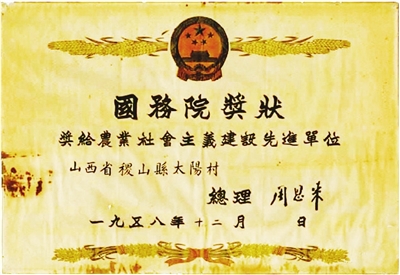 國務院獎狀
獎給農業社會主義建設先進單位
山西省稷山縣太陽村
總理 周恩来
一九五八年十二月 日